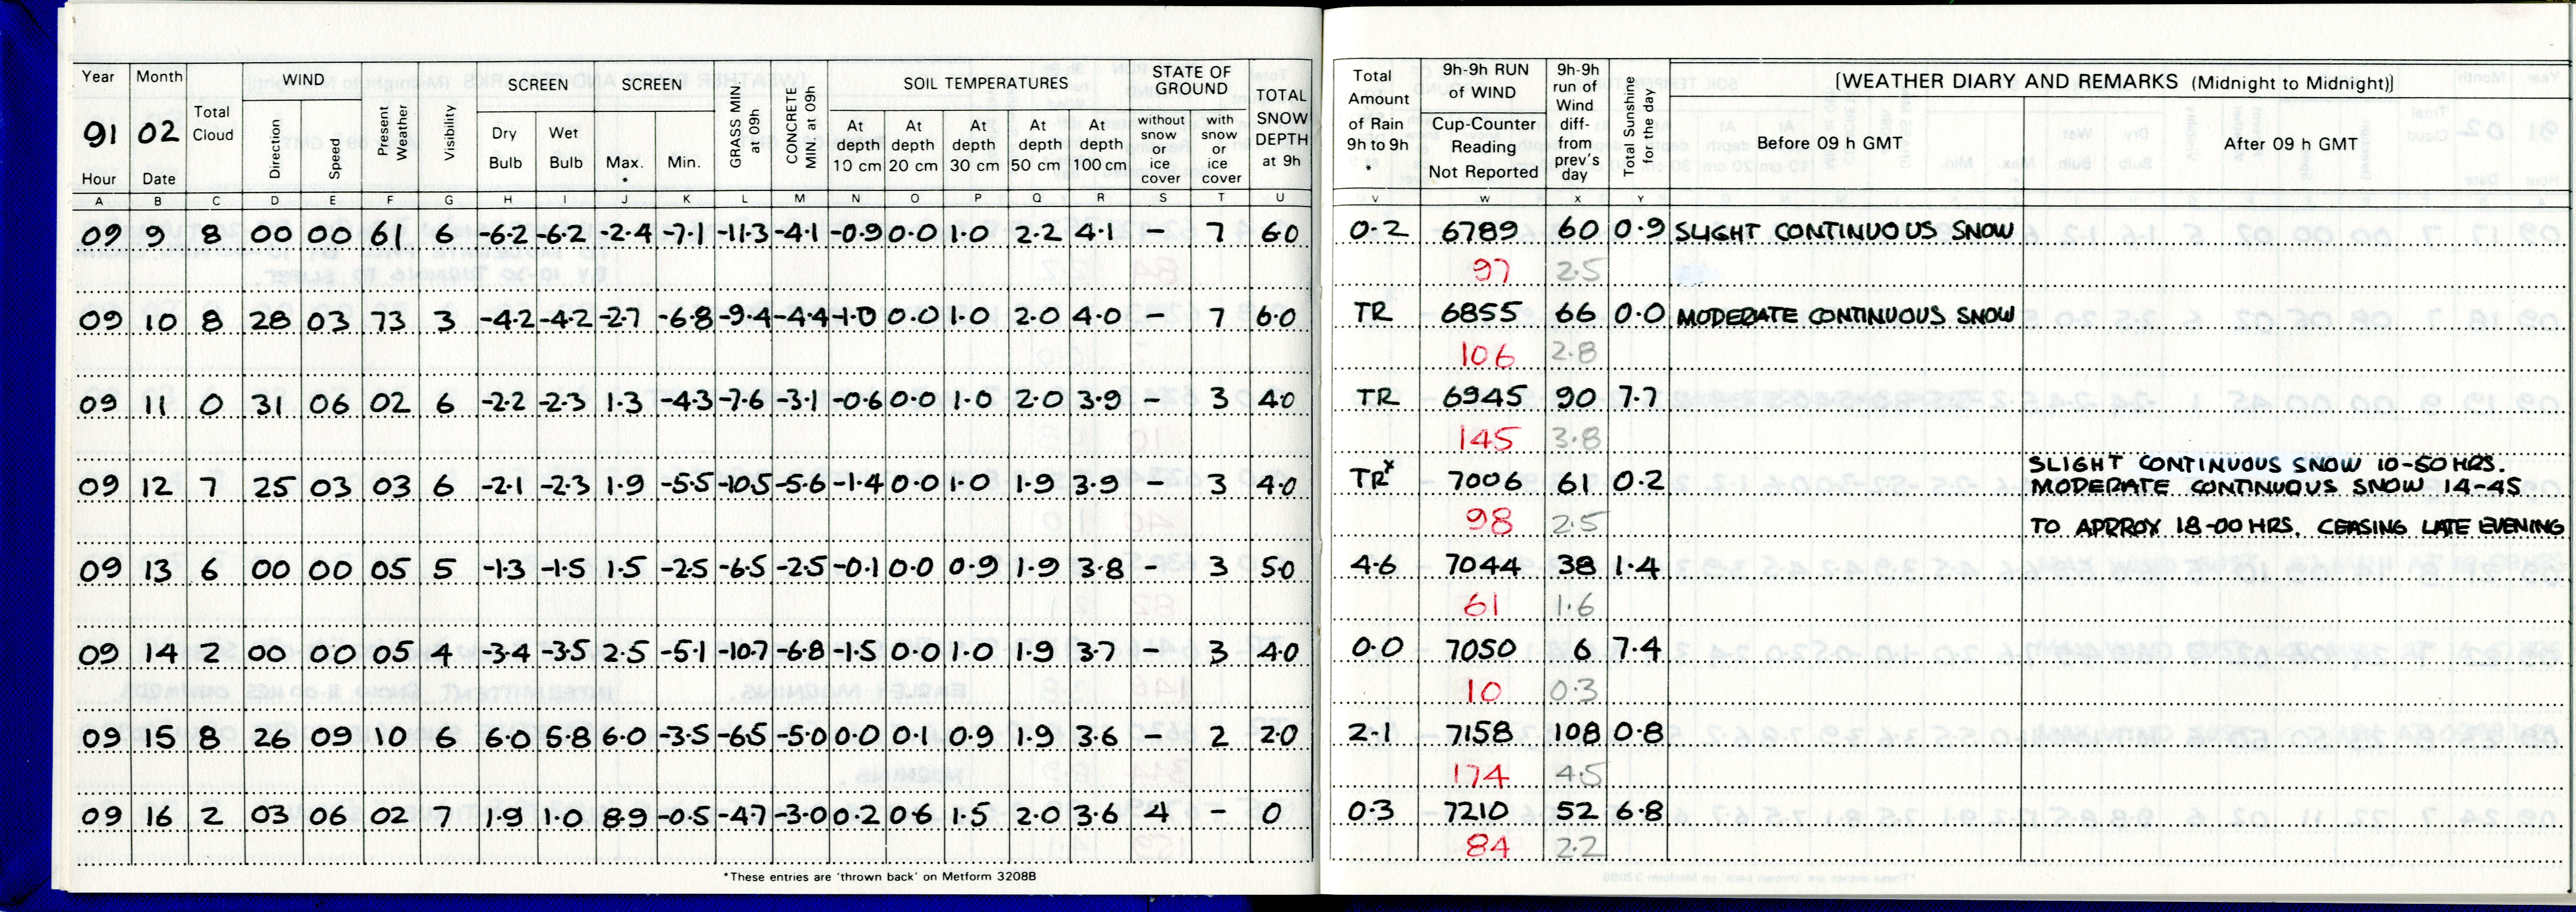 Year Month Total Cloud WIND Present Weather Visibility SCREEN SCREEN GRASS MIN. at 09h CONCRETE MIN. at 09h SOIL TEMPERATURES STATE OF GROUND TOTAL SNOW DEPTH at 9h
91 02 Direction Speed Dry Bulb Wet Bulb Max. * Min. At depth 10 cm At depth 20 cm At depth 30 cm At depth 50 cm At depth 100 cm without snow or ice cover with snow or ice cover
Hour Date
A B C D E F G H I J K L M N O P Q R S T U
09 9 8 00 00 61 6 -6.2 -6.2 -2.4 -7.1 -11.3 -4.1 -0.9 0.0 1.0 2.2 4.1 - 7 6.0
09 10 8 28 03 73 3 -4.2 -4.2 -2.7 -6.8 -9.4 -4.4 -1.0 0.0 1.0 2.0 4.0 - 7 6.0
09 11 0 31 06 02 6 -2.2 -2.3 1.3 -4.3 -7.6 -3.1 -0.6 0.0 1.0 2.0 3.9 - 3 4.0
09 12 7 25 03 03 6 -2.1 -2.3 1.9 -5.5 -10.5 -5.6 -1.4 0.0 1.0 1.9 3.9 - 3 4.0
09 13 6 00 00 05 5 -1.3 -1.5 1.5 -2.5 -6.5 -2.5 -0.1 0.0 0.9 1.9 3.8 - 3 5.0
09 14 2 00 00 05 4 -3.4 -3.5 2.5 -5.1 -10.7 -6.8 -1.5 0.0 1.0 1.9 3.7 - 3 4.0
09 15 8 26 09 10 6 6.0 5.8 6.0 -3.5 -6.5 -5.0 0.0 0.1 0.9 1.9 3.6 - 2 2.0
09 16 2 03 06 02 7 1.9 1.0 8.9 -0.5 -4.7 -3.0 0.2 0.6 1.5 2.0 3.6 4 - 0
*These entries are 'thrown back' on Metform 3208B
Total Amount of Rain 9h to 9h * 9h-9h RUN of WIND Cup-Counter Reading Not Reported 9h-9h run of Wind diff- from prev's day Total Sunshine for the day [WEATHER DIARY AND REMARKS (Midnight to Midnight)]
Before 09 h GMT After 09 h GMT
V W X Y
0.2 6789 60 0.9 SLIGHT CONTINUOUS SNOW
97 2.5
TR 6855 66 0.0 MODERATE CONTINUOUS SNOW
106 2.8
TR 6945 90 7.7
145 3.8
SLIGHT CONTINUOUS SNOW 10-50 HRS.
TRx 7006 61 0.2 MODERATE CONTINUOUS SNOW 14-45
98 2.5 TO APPROX 18-00 HRS. CEASING LATE EVENING
4.6 7044 38 1.4
61 1.6
0.0 7050 6 7.4
10 0.3
2.1 7158 108 0.8
174 4.5
0.3 7210 52 6.8
84 2.2